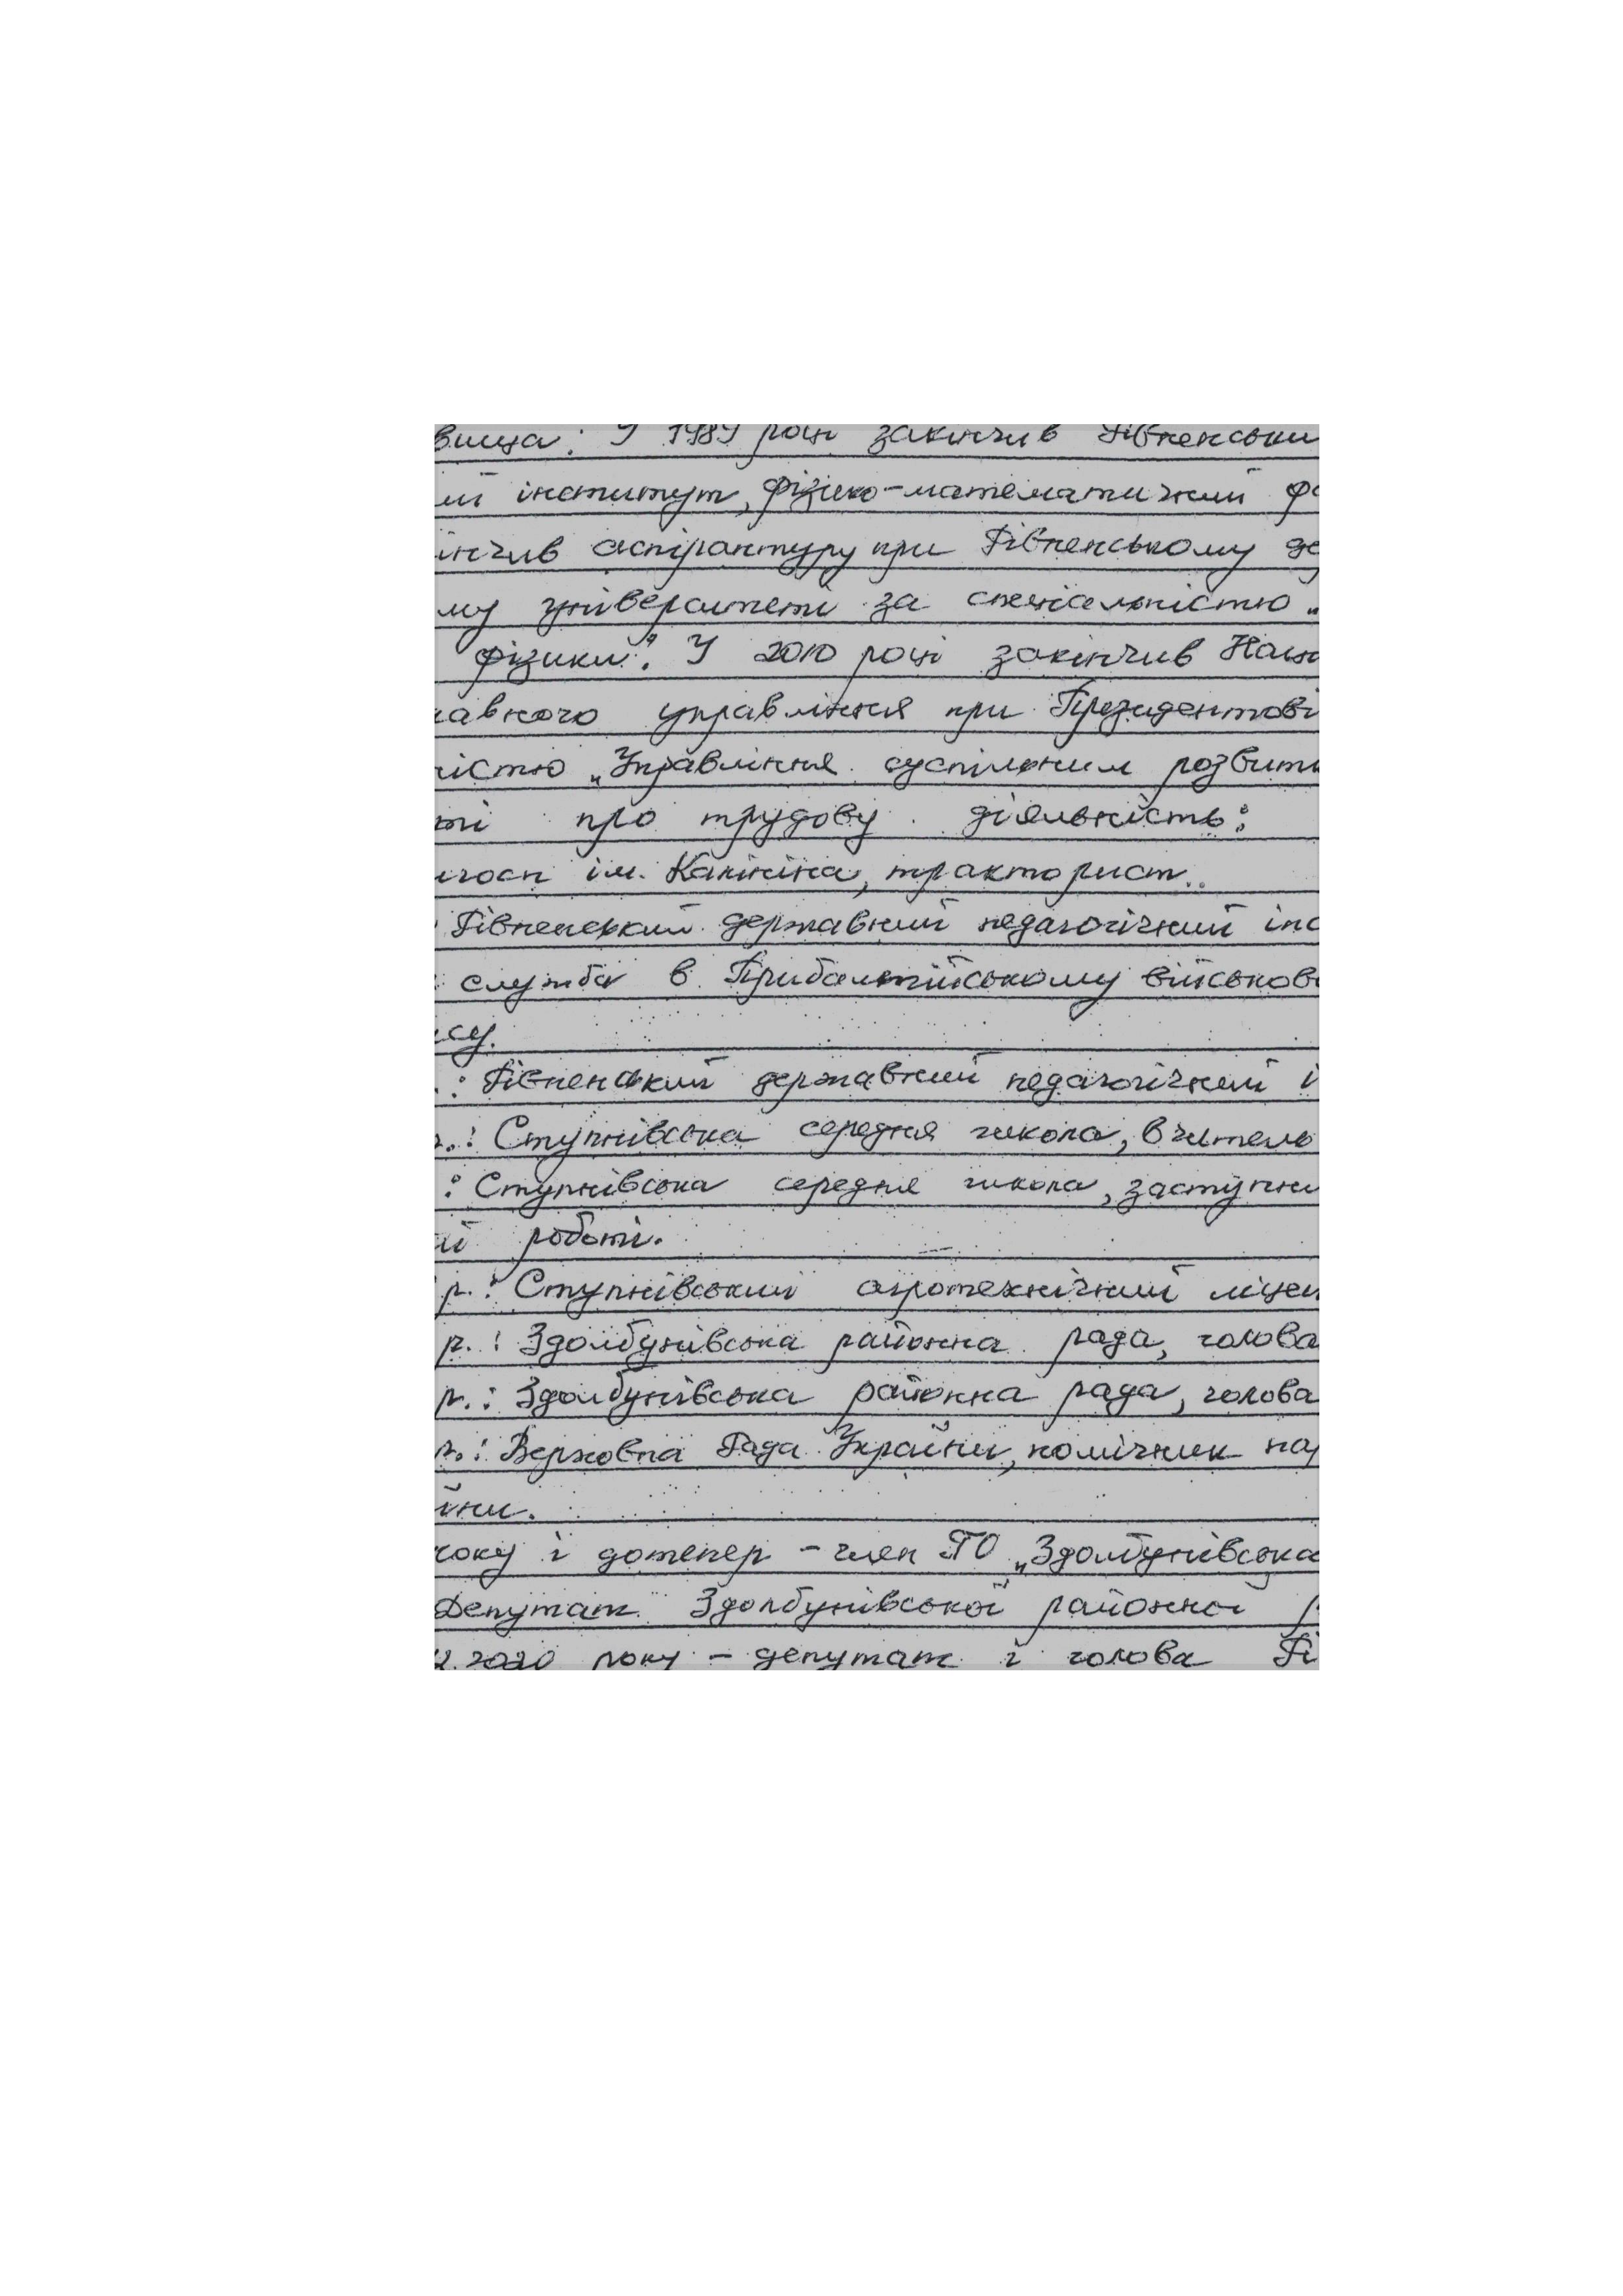 вища: У 1989 році закінчив Рівненськи
ий інститут, фізико-математичний ф
інчив аспірантуру при Рівненському де
му університеті за спеціальністю „
фізики". У 2010 році закінчив Наці
авного управління при Президентові
істю „Управління суспільним розвит
ті про трудову діяльність:
госп ім. Калініна, тракторист.
Рівненський державний педагогічний інс
: служба в Прибалтійському військово
су.
: Рівненський державний педагогічний і
р.: Ступнівська середня школа, вчитель
: Ступнівська середня школа, заступни
й роботі.
р.: Ступнівський агротехнічний ліцей
р.: Здолбунівська районна рада, голова
р.: Здолбунівська районна рада, голова
р.: Верховна Рада України, помічник на
їни.
року і дотепер - член ГО „Здолбунівська
Депутат Здолбунівської районної р
2.2020 року - депутат і голова Рі